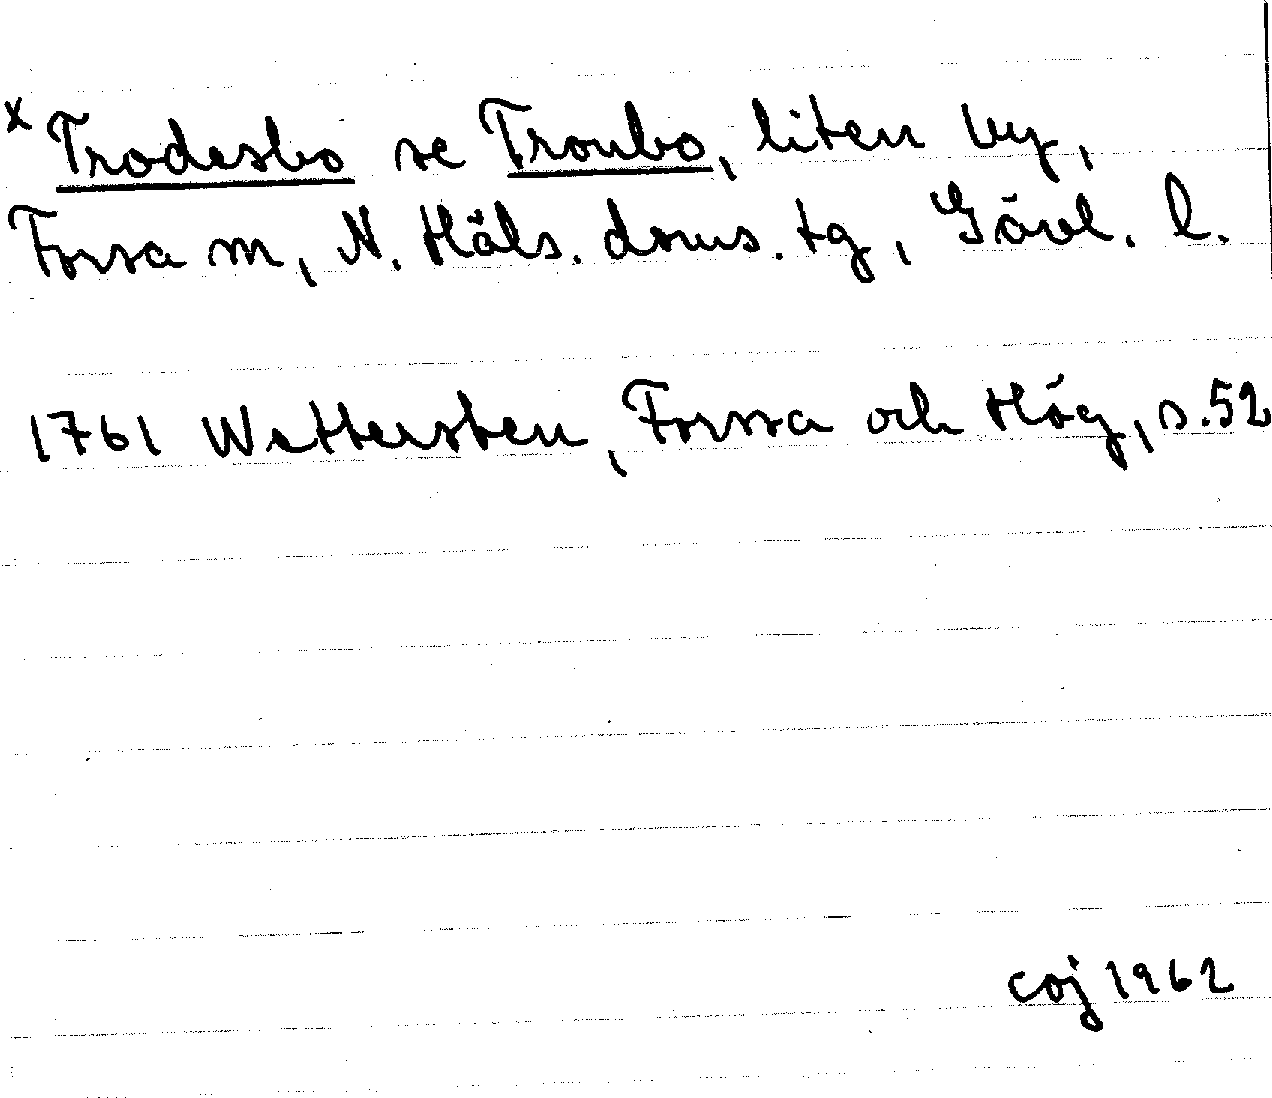 x Trodesbo se Tronbo, liten by,
Forsa sn, N. Häls. doms. tg, Gävl. l.
1761 Wettersten, Forssa och Hög, s. 52
coj 1962